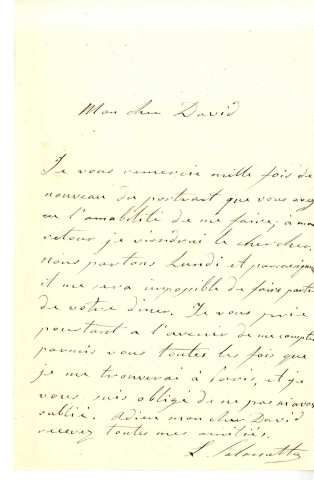 Mon cher David
Je vous remercie mille fois de
nouveau du portrait que vous avez
eu l'amabilité de me faire; à mon
retour je viendrai le chercher.
nous partons Lundi et par conséquent
il me sera impossible de faire partie
de votre diner. Je vous prie
pourtant a l'avenir de me compter
parmis vous toutes les fois que
je me trouverai à Paris, et je
vous suis obligé de ne pas m'avoir
oublié. Adieu mon cher David
recevez toutes mes amitiés.
L.